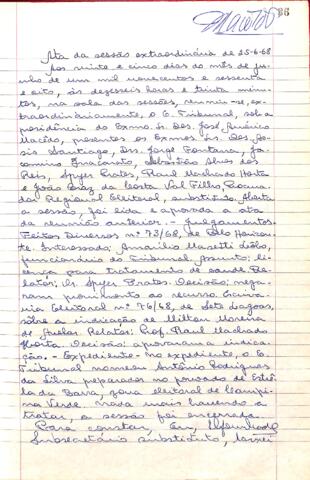 86
Ata da sessão extraordinária de 25-6-68
Aos vinte e cinco dias do mês de ju-
nho de um mil novecentos e sessenta
e oito, às dezesseis horas e trinta minu-
tos, na sala das sessões, reuniu-se, ex-
traordinàriamente, o E. Tribunal, sob a
presidência do Exmo. Sr. Des. José Américo
Macêdo, presentes os Exmos. Srs. Des. As-
sis Santiago, Drs. Jorge Fontana, Ja-
comino Inacarato, Sebastião Alves dos
Reis, Spyer Prates, Raul Machado Horta
e João Braz da Costa Val Filho, Procura-
dor Regional Eleitoral, substituto. Aberta
a sessão, foi lida e aprovada a ata
da reunião anterior. - Julgamentos.
Feitos Diversos nº 73/68, de Belo Horizon-
te. Interessado: Amarílio
funcionário do Tribunal. Assunto: li-
cença para tratamento de saúde. Re-
lator: Dr. Spyer Prates. Decisão: nega-
ram provimento ao recurso.
Eleitoral nº 76/68, de Sete Lagoas,
sôbre a indicação de Milton Moreira
de Avelar. Relator: Prof. Raul Machado
Horta. Decisão: aprovaram a indica-
ção. - Expediente - no expediente, o E.
Tribunal nomeou Antônio Rodrigues
da Silva preparador no povoado de
da Barra, zona eleitoral de Campi-
na Verde. Nada mais havendo a
tratar, a sessão foi encerrada.
Para constar, Eu,
Subsecretário substituto, lavrei